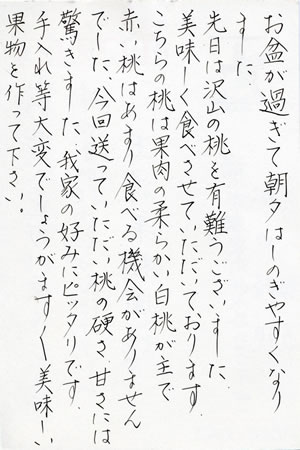 お盆が過ぎて朝夕はしのぎやすくなり
ました
先日は沢山の桃を有難うございました
美味しく食べさせていただいております
こちらの桃は果肉の柔らかい白桃が主で
赤い桃はあまり食べる機会がありません
でした、今回送っていただいた桃の硬さ、甘さには
驚きました、我家の好みにピッタリです、
手入れ等大変でしょうがますます美味しい
果物を作って下さい。